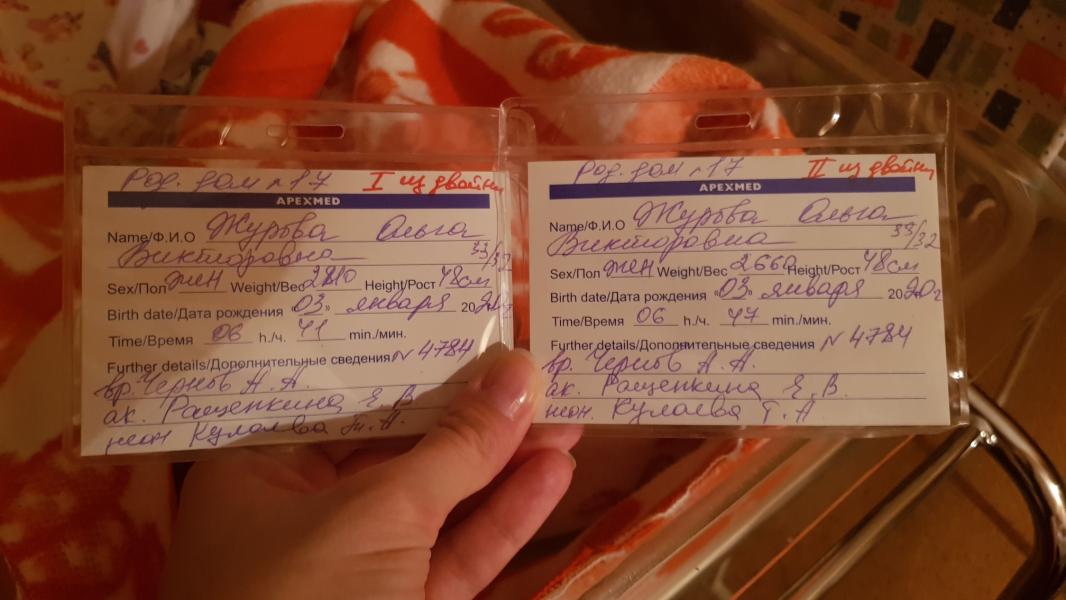 Род. дом №17 I из двойни
APEXMED
Name/Ф.И.О Журова Ольга
Викторовна 33/32
Sex/Пол жен Weight/Вес Height/Рост 48см
Birth date/Дата рождения «03» января 20
Time/Время 06 h./ч. 41 min./мин.
Further details/Дополнительные сведения N 4784
вр. Чернов А.А.
ак. Ращепкина Е.В
неон. Кулаева Т.А.
Род. дом №17 II из двойни
APEXMED
Name/Ф.И.О Журова Ольга
Викторовна 33/32
Sex/Пол жен Weight/Вес 2660 Height/Рост 48см
Birth date/Дата рождения «03» января 20
Time/Время 06 h./ч. 47 min./мин.
Further details/Дополнительные сведения N 4784
вр. Чернов А.А.
ак. Ращепкина Е.В.
неон. Кулаева Т.А